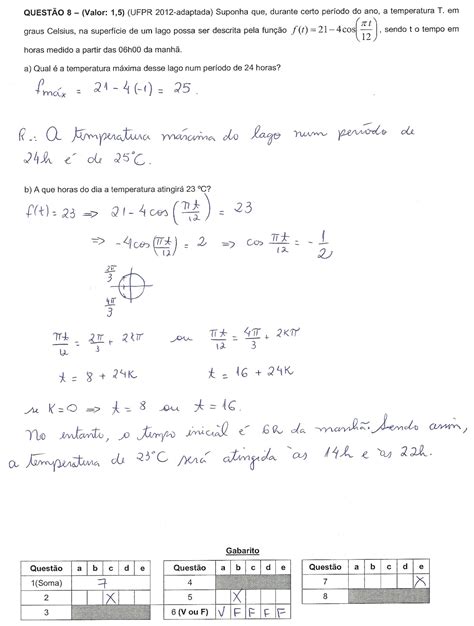 QUESTÃO 8 – (Valor: 1,5) (UFPR 2012-adaptada) Suponha que, durante certo período do ano, a temperatura T. em
graus Celsius, na superfície de um lago possa ser descrita pela função f(t) = 21 − 4cos(πt/12), sendo t o tempo em
horas medido a partir das 06h00 da manhã.
a) Qual é a temperatura máxima desse lago num período de 24 horas?
fmáx = 21 - 4(-1) = 25.
R.: A temperatura máxima do lago num período de
24h é de 25°C.
b) A que horas do dia a temperatura atingirá 23 ºC?
f(t) = 23 => 21 - 4cos(πt/12) = 23
=> -4cos(πt/12) = 2 => cos πt/12 = -1/2
2π/3
4π/3
πt/12 = 2π/3 + 2kπ ou πt/12 = 4π/3 + 2kπ
t = 8 + 24K t = 16 + 24K
se K=0 => t = 8 ou t = 16.
No entanto, o tempo inicial é 6h da manhã. Sendo assim,
a temperatura de 23°C será atingida às 14h e às 22h.
Gabarito
Questão a b c d e Questão a b c d e Questão a b c d e
1(Soma) 7 4 7 X
2 X 5 X 8
3 6 (V ou F) V F F F F